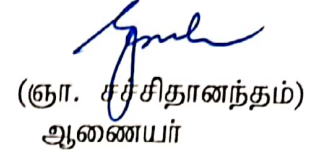 (ஞா. சச்சிதானந்தம்)
ஆணையர்